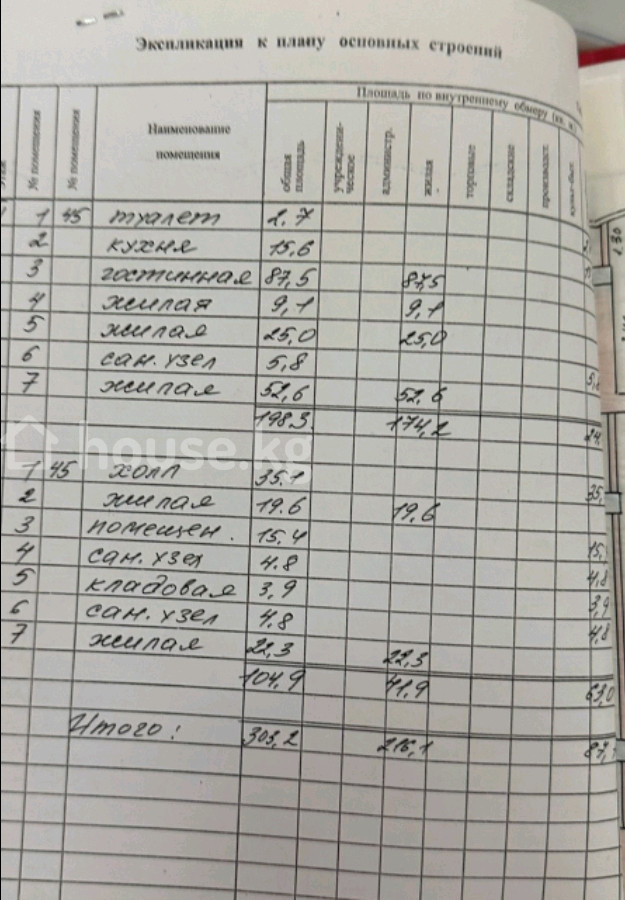 Экспликация к плану основных строений
Площадь по внутреннему обмеру (кв. м.)
№ помещения
№ помещения
Наименование помещения
общая площадь
учреждени-ческое
администр.
жилая
торговые
складские
производст.
культ-быт.
1 45 туалет 2.7
2 кухня 15,6
3 гостинная 87,5 87,5
4 жилая 9,1 9,1
5 жилая 25,0 25,0
6 сан. узел 5,8
7 жилая 52,6 52.6
198.3 174,2 24,
house.kg
1 45 холл 35.1 35,
2 жилая 19.6 19,6
3 помещен. 15.4 15,
4 сан. узел 4.8 4,8
5 кладовая 3,9 3,9
6 сан. узел 4.8 4,8
7 жилая 22,3 22,3
104,9 41,9 63,0
Итого: 303,2 216,1 87,
1.30